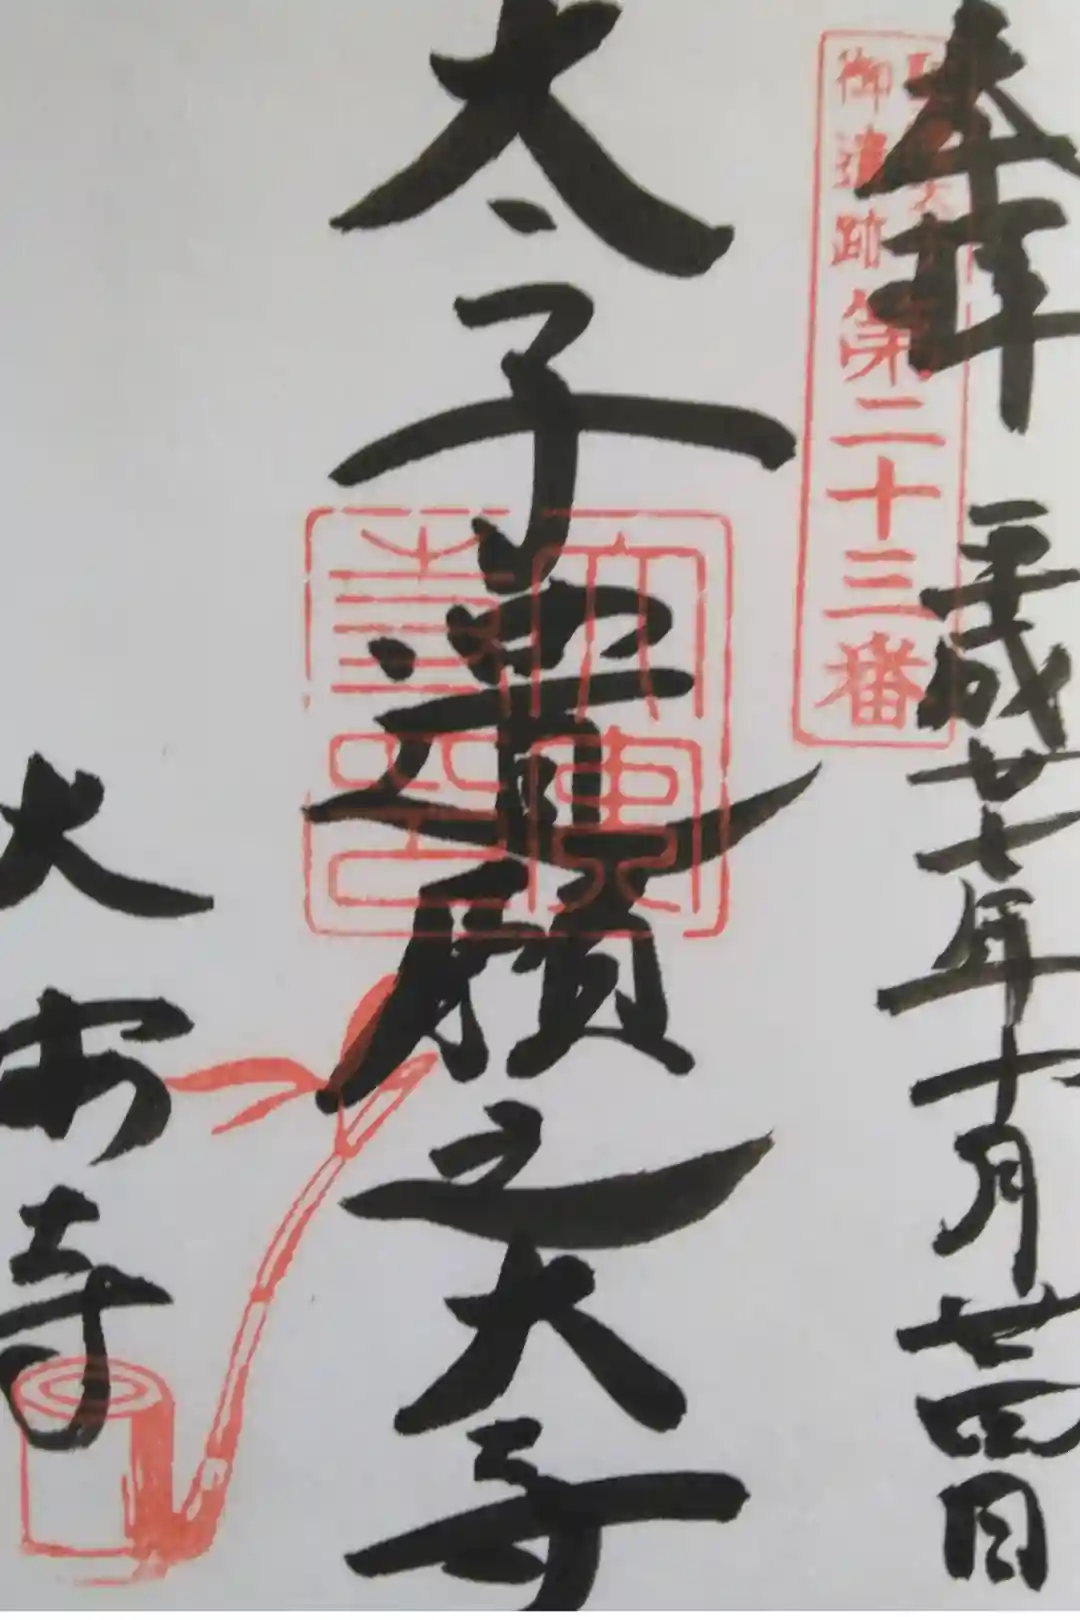 奉拝 平成廿七年十月廿四日
聖徳太子
御遺跡第二十三番
太子遺願之大寺
大安寺